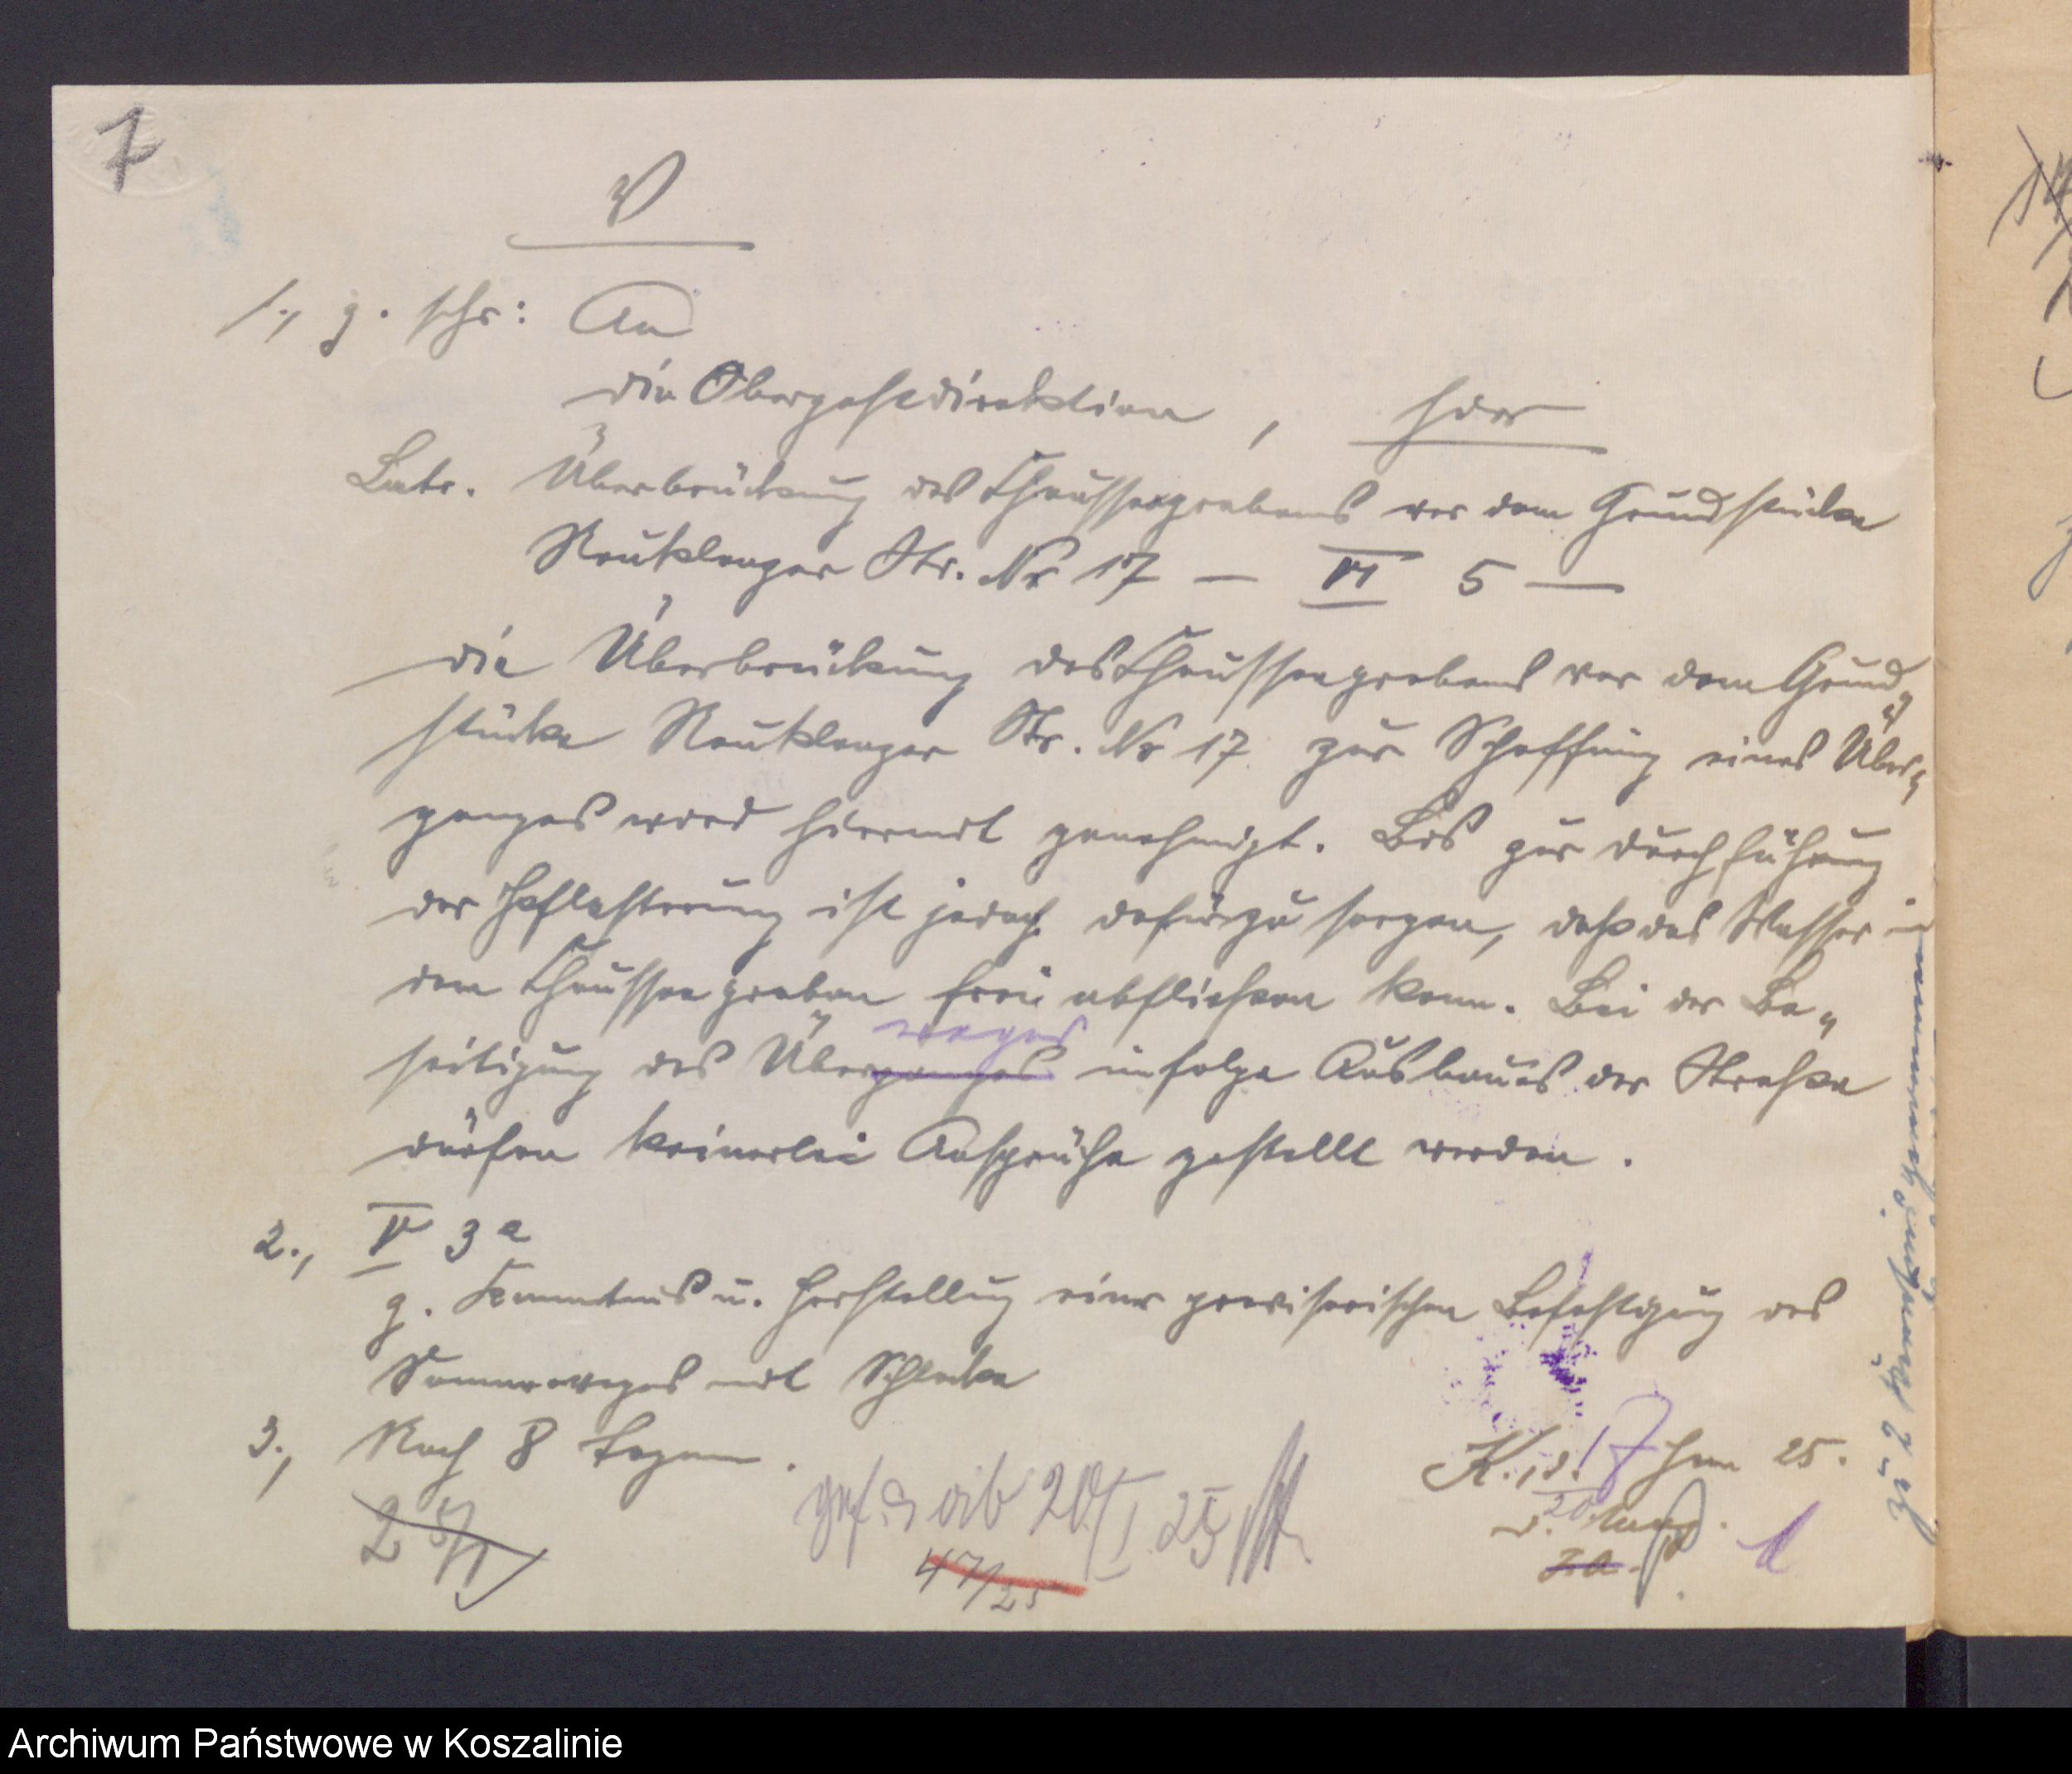 7
V
1., z. schr: An
die Oberpostdirektion, hier
Betr. Überbrückung des Chausseegrabens vor dem Grundstücke
Neuklenzer Str. Nr 17 – VI 5 –
Die Überbrückung des Chausseegrabens vor dem Grund-
stücke Neuklenzer Str. Nr 17 zur Schaffung eines Über-
ganges wird hiermit genehmigt. Bis zur Durchführung
der Pflasterung ist jedoch dafür zu sorgen, daß das Wasser in
dem Chausseegraben frei abfließen kann. Bei der Be-
weges
seitigung des Überganges infolge Ausbaues der Straße
dürfen keinerlei Ansprüche gestellt werden.
2., V 3a
z. Kenntnis u. Herstellung einer provisorischen Befestigung des
Sommerweges mit Schlacke
3., Nach 8 Tagen.
K. d. 17 Jan 25.
25/1
20/I 25
47/25
D. Mag.
I. A.
zu 2
Archiwum Państwowe w Koszalinie